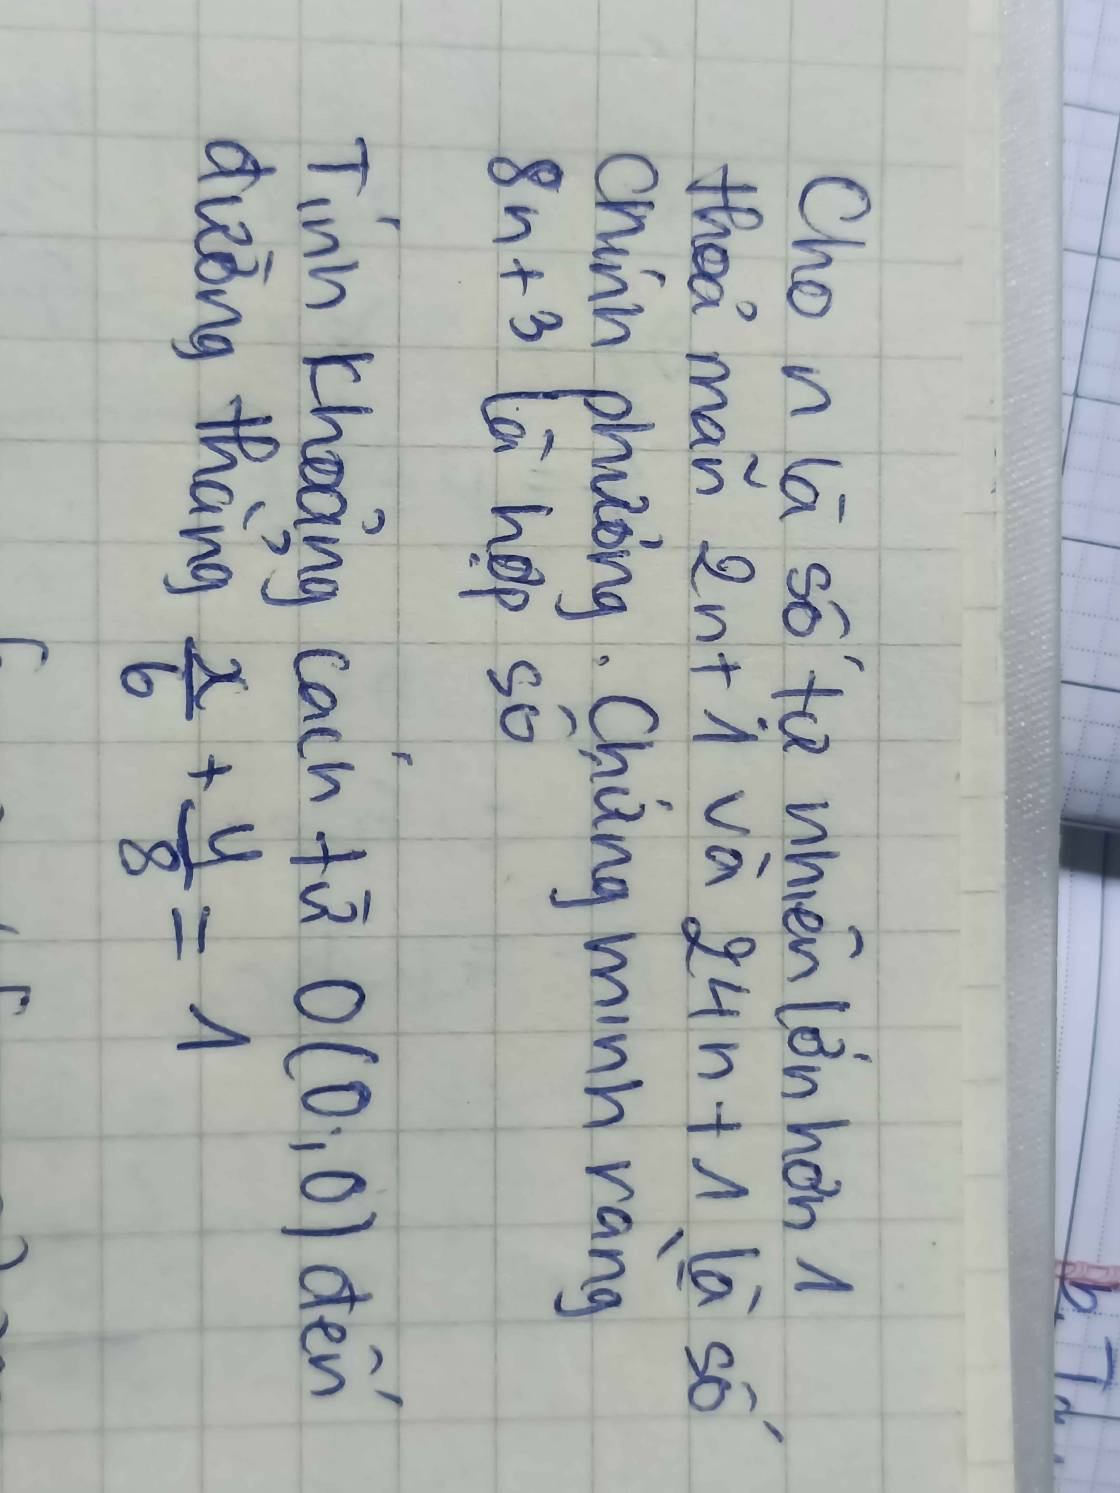 Cho n là số tự nhiên lớn hơn 1
thoả mãn 2n+1 và 24n+1 là số
Chính phương. Chứng minh rằng
8n+3 là hợp số
Tính khoảng cách từ O(0;0) đến
đường thẳng x/6 + y/8 = 1